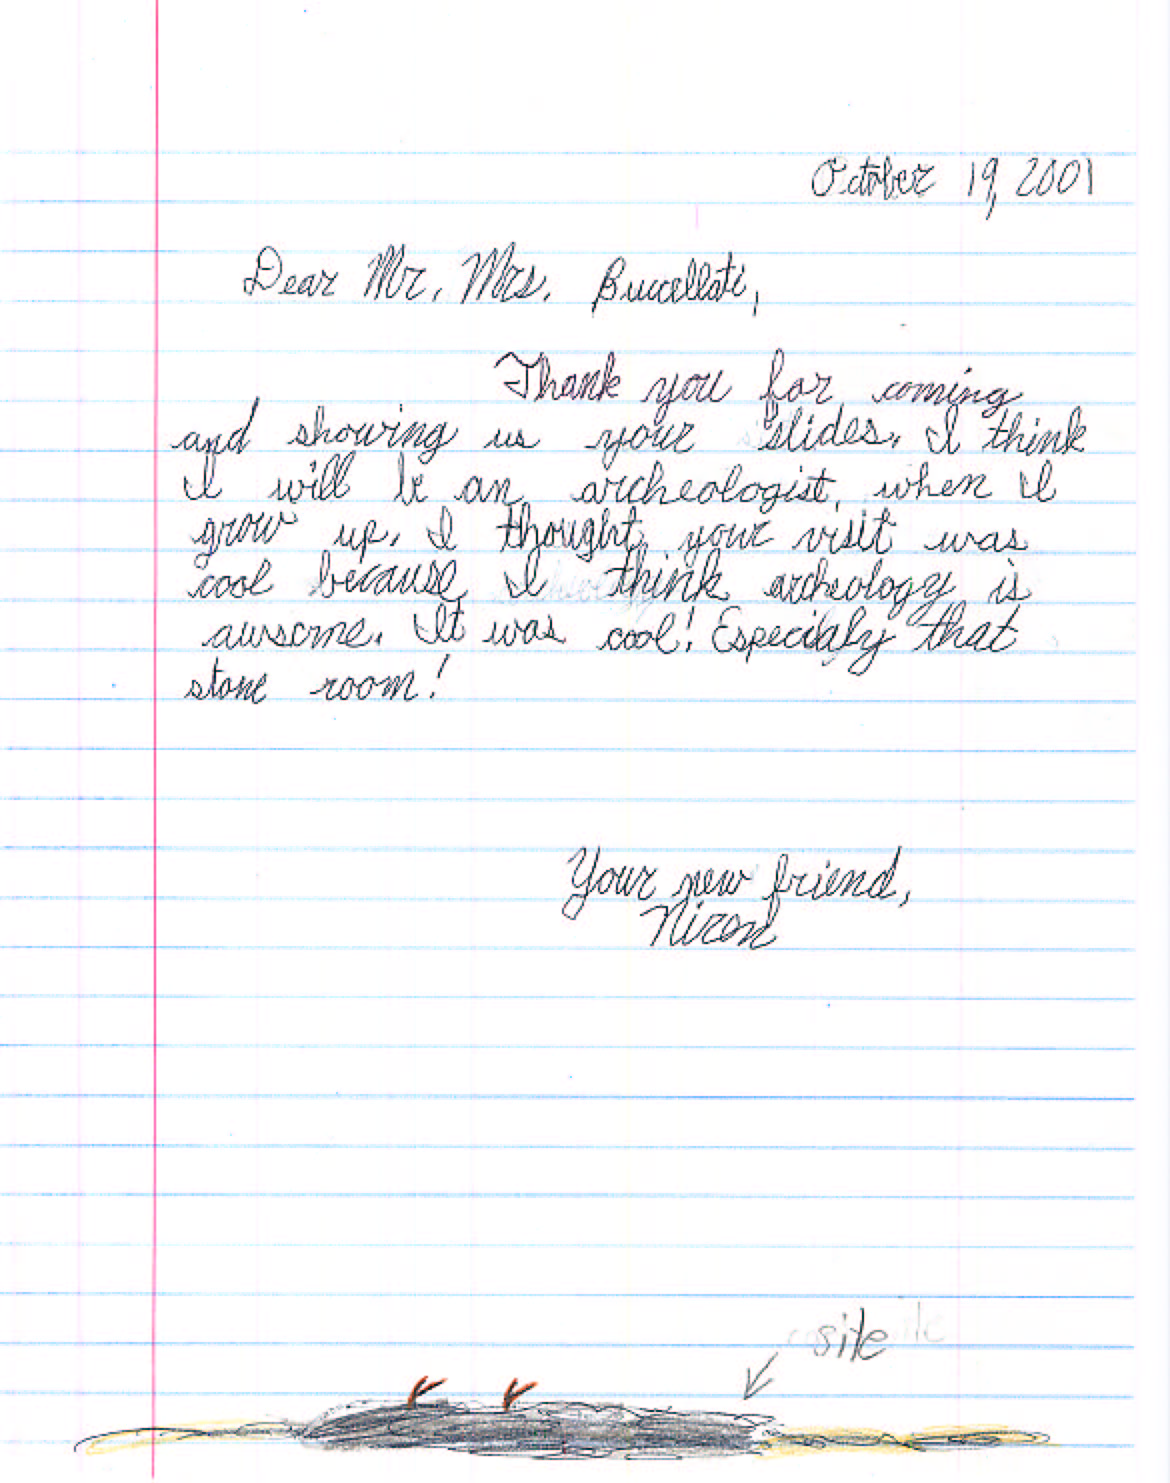 October 19, 2001
Dear Mr. Mrs. Buccellati,
Thank you for coming
and showing us your slides. I think
I will be an archeologist when I
grow up. I thought your visit was
cool because I think archeology is
awsome. It was cool! Especialy that
stone room!
Your new friend,
site